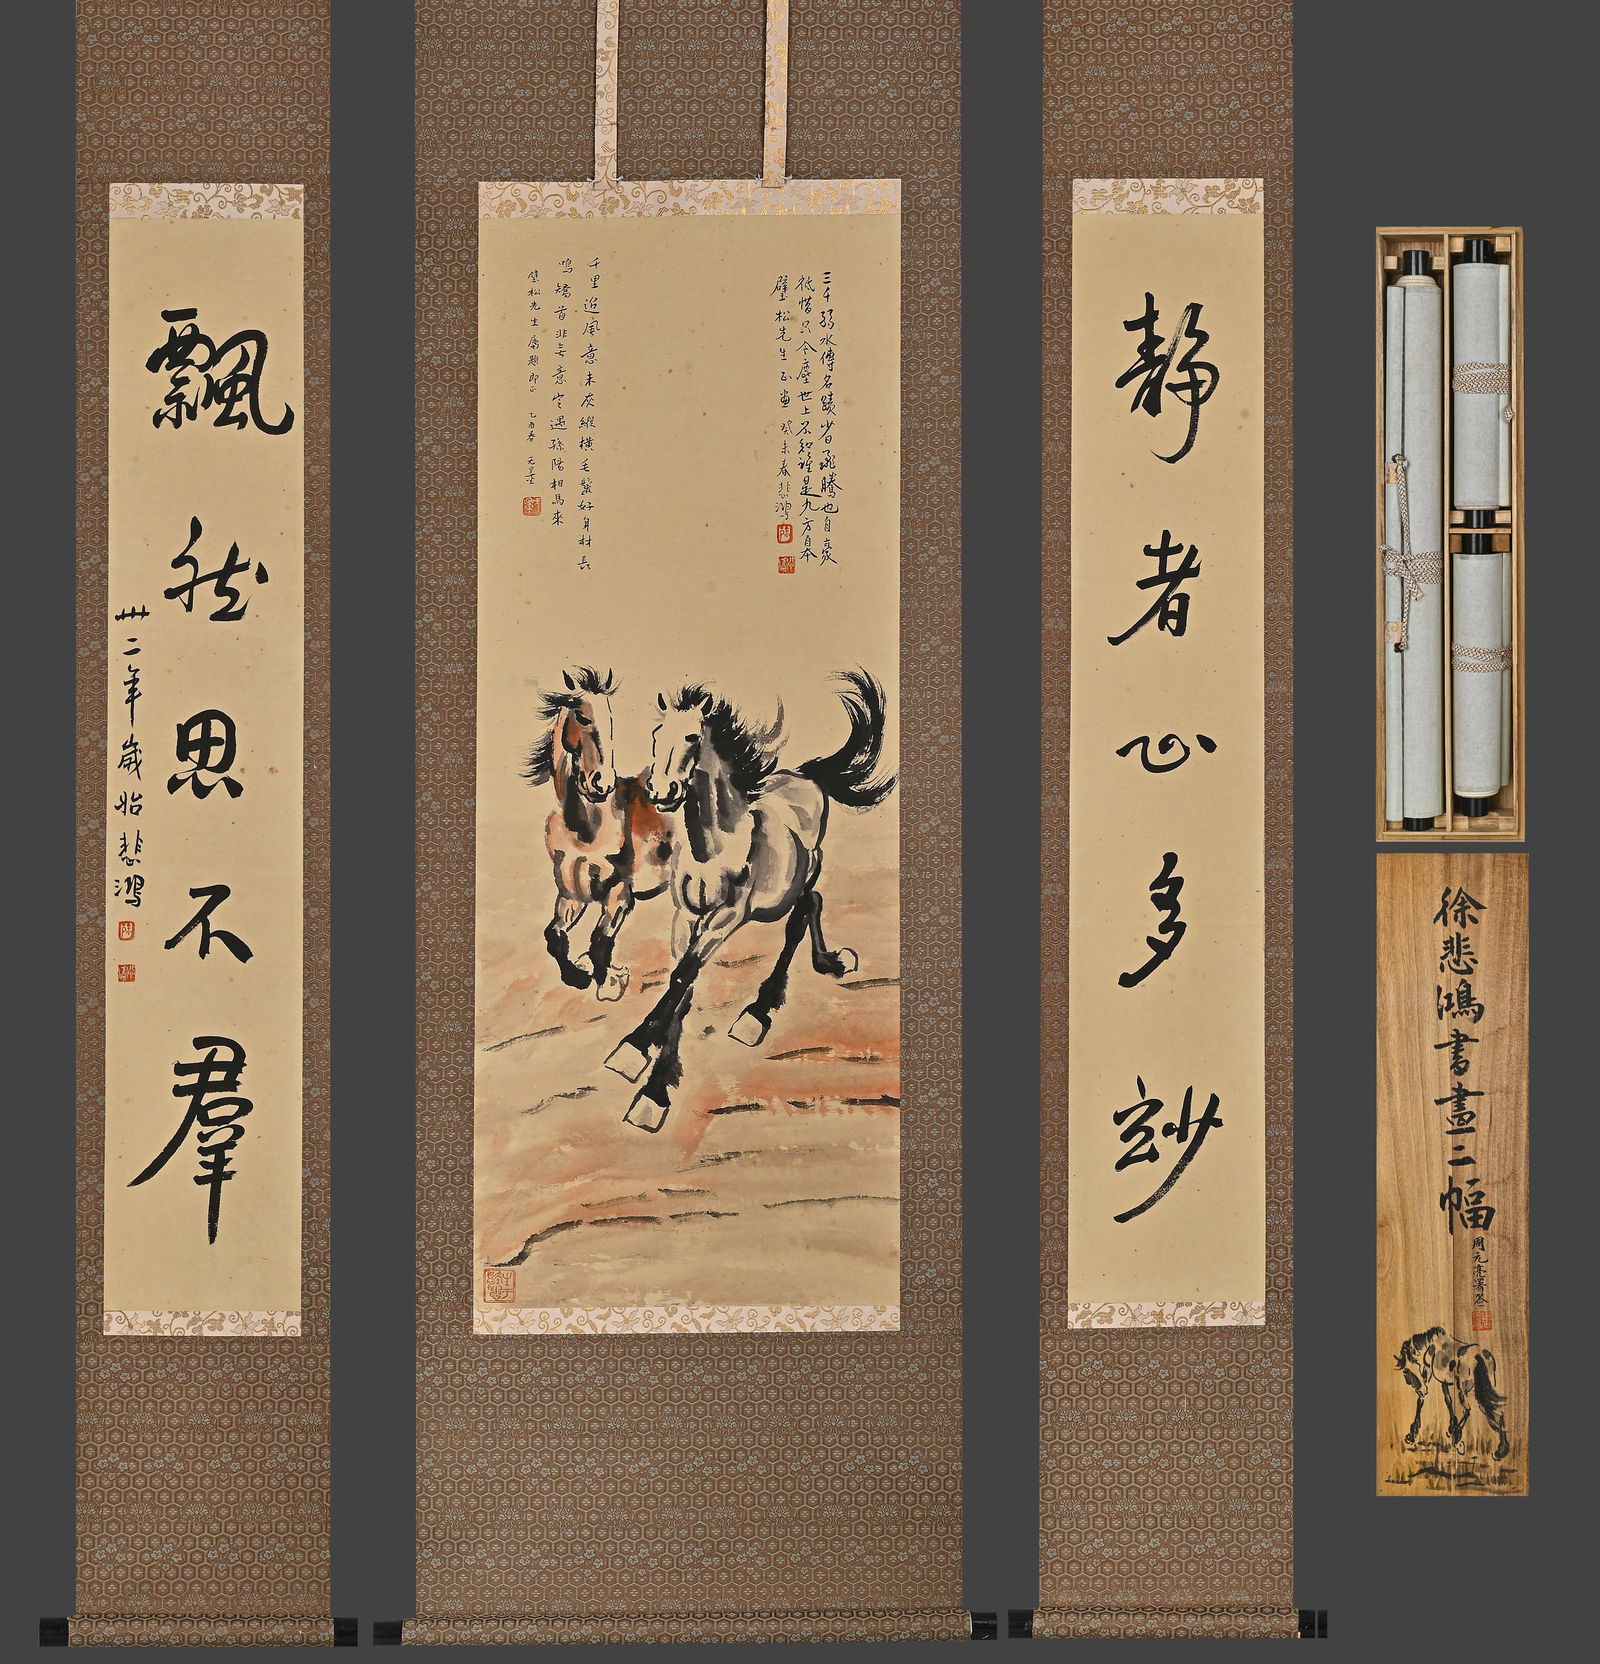 靜者心多玅
三千弱水傳名蹟省飛騰也自哀
祇惜只今塵世上不知誰是九方自本
壁松先生正畫 癸未春悲鴻
千里追風意未灰縱橫毛鬣好身材長
鳴矯首非無意它遇孫陽相馬來
壁松先生屬題即正 乙酉春
飄然思不羣
卅二年歲始悲鴻
徐悲鴻書畫二幅
周元亮署签